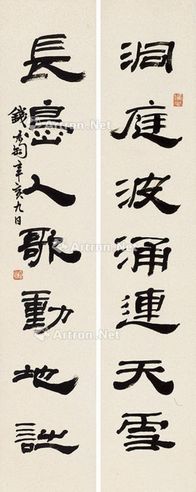 洞庭波涌連天雪
長島人歌動地詩
錢君匋辛亥九日
Artron.Net